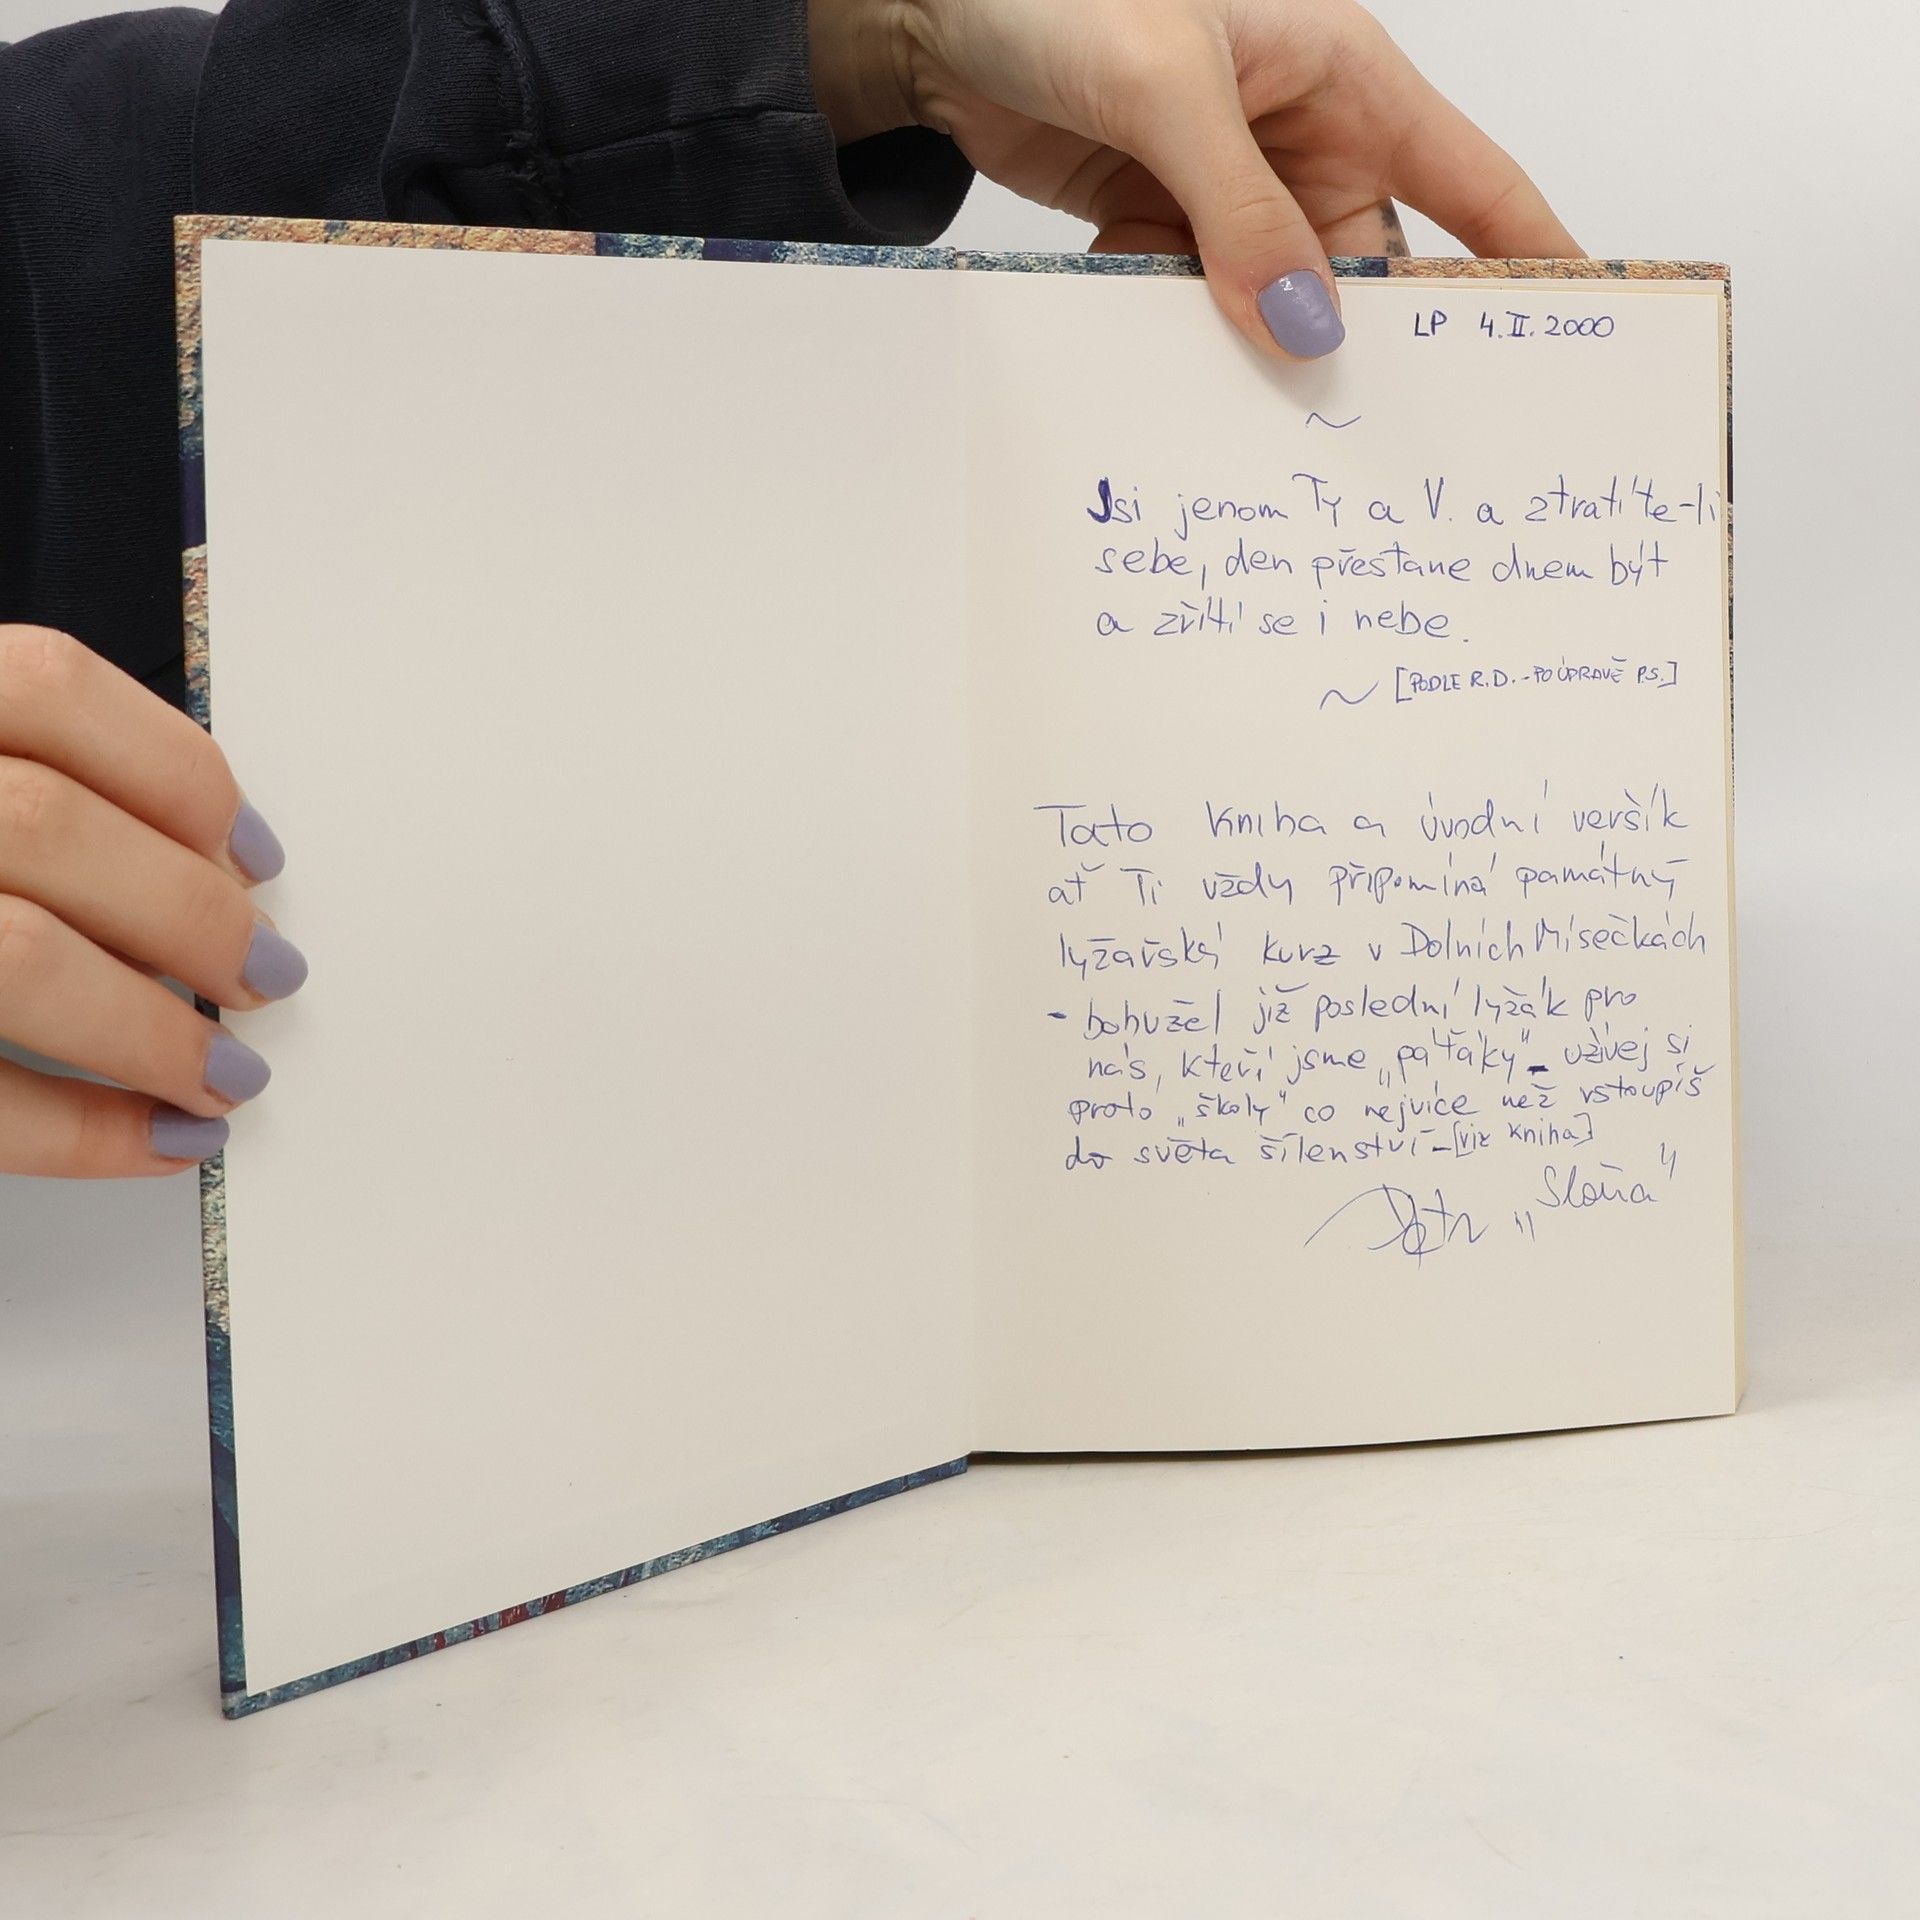 LP 4.II.2000
~
Jsi jenom Ty a V. a ztratíte-li
sebe, den přestane dnem být
a zřítí se i nebe.
~ [PODLE R.D. - PO ÚPRAVĚ P.S.]
Tato kniha a úvodní veršík
ať Ti vždy připomíná památný
lyžařský kurz v Dolních Mísečkách
- bohužel již poslední lyžák pro
nás, kteří jsme „páťáky" - užívej si
proto „školy" co nejvíce než vstoupíš
do světa šílenství - [viz kniha]
Petr „Sloňa"